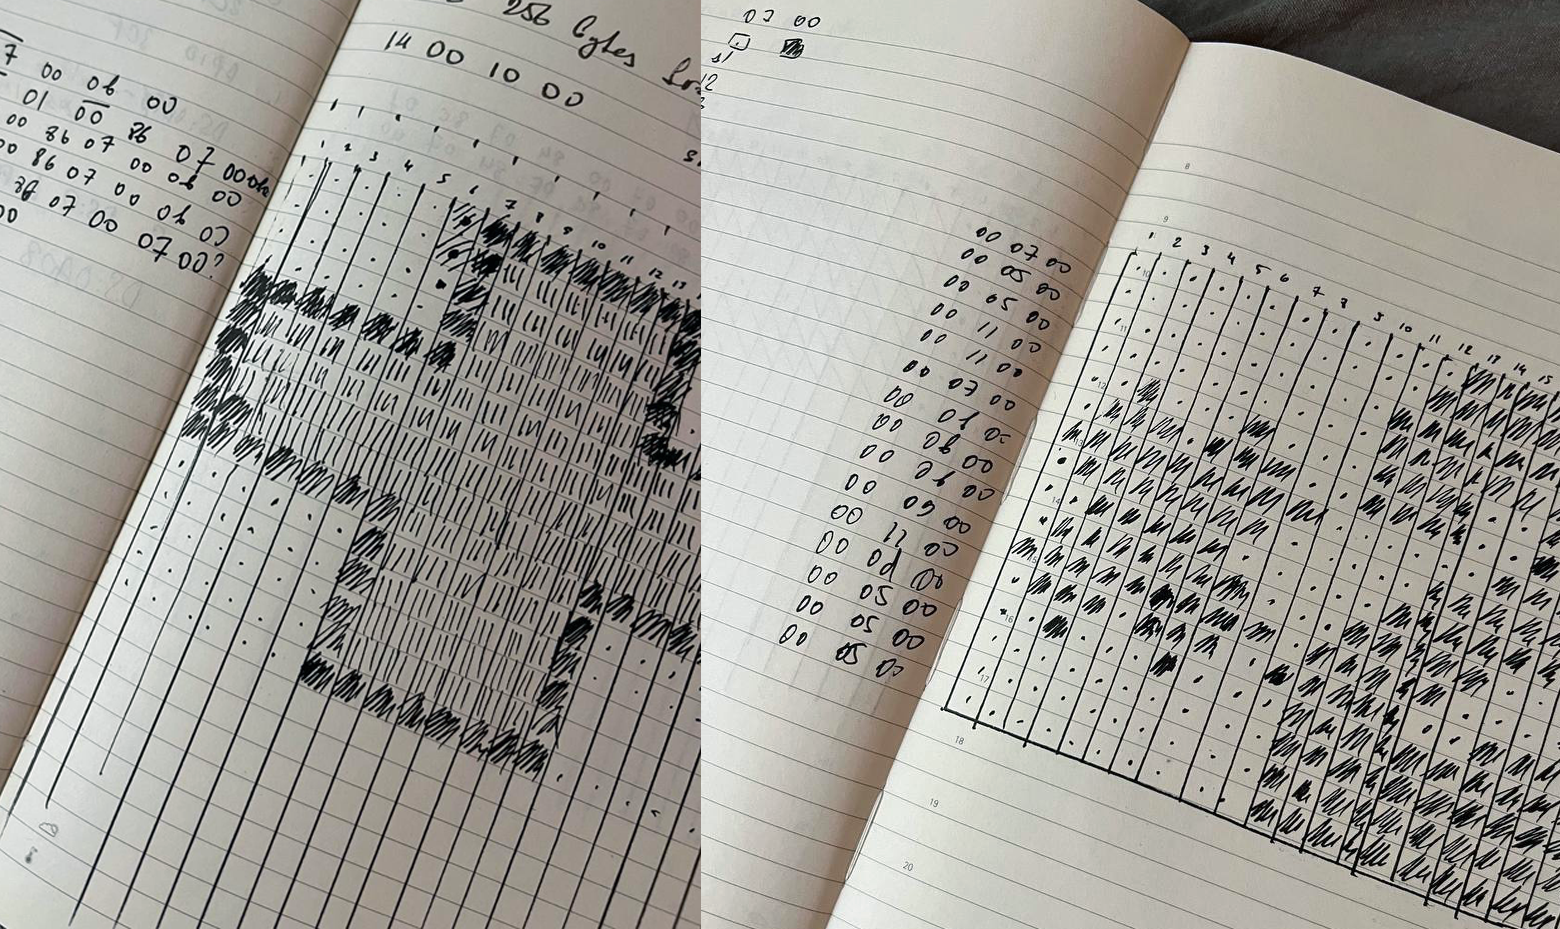 256 bytes
14 00 10 00
7 00 06 00
01 00 86 07 00 06
00 86 07 00 06 00
00 86 07 00 06 00
86 07 00 07 00?
00
1 2 3 4 5 6 7 8 9 10 11 12 13
07 00
12
00 07 00
00 05 00
00 05 00
00 11 00
00 11 00
00 07 00
00 0b 00
00 0b 00
00 0b 00
00 09 00
00 12 00
00 0d 00
00 05 00
00 05 00
00 05 00
1 2 3 4 5 6 7 8 9 10 11 12 13 14 15
8
9
10
11
12
13
14
15
16
17
18
19
20